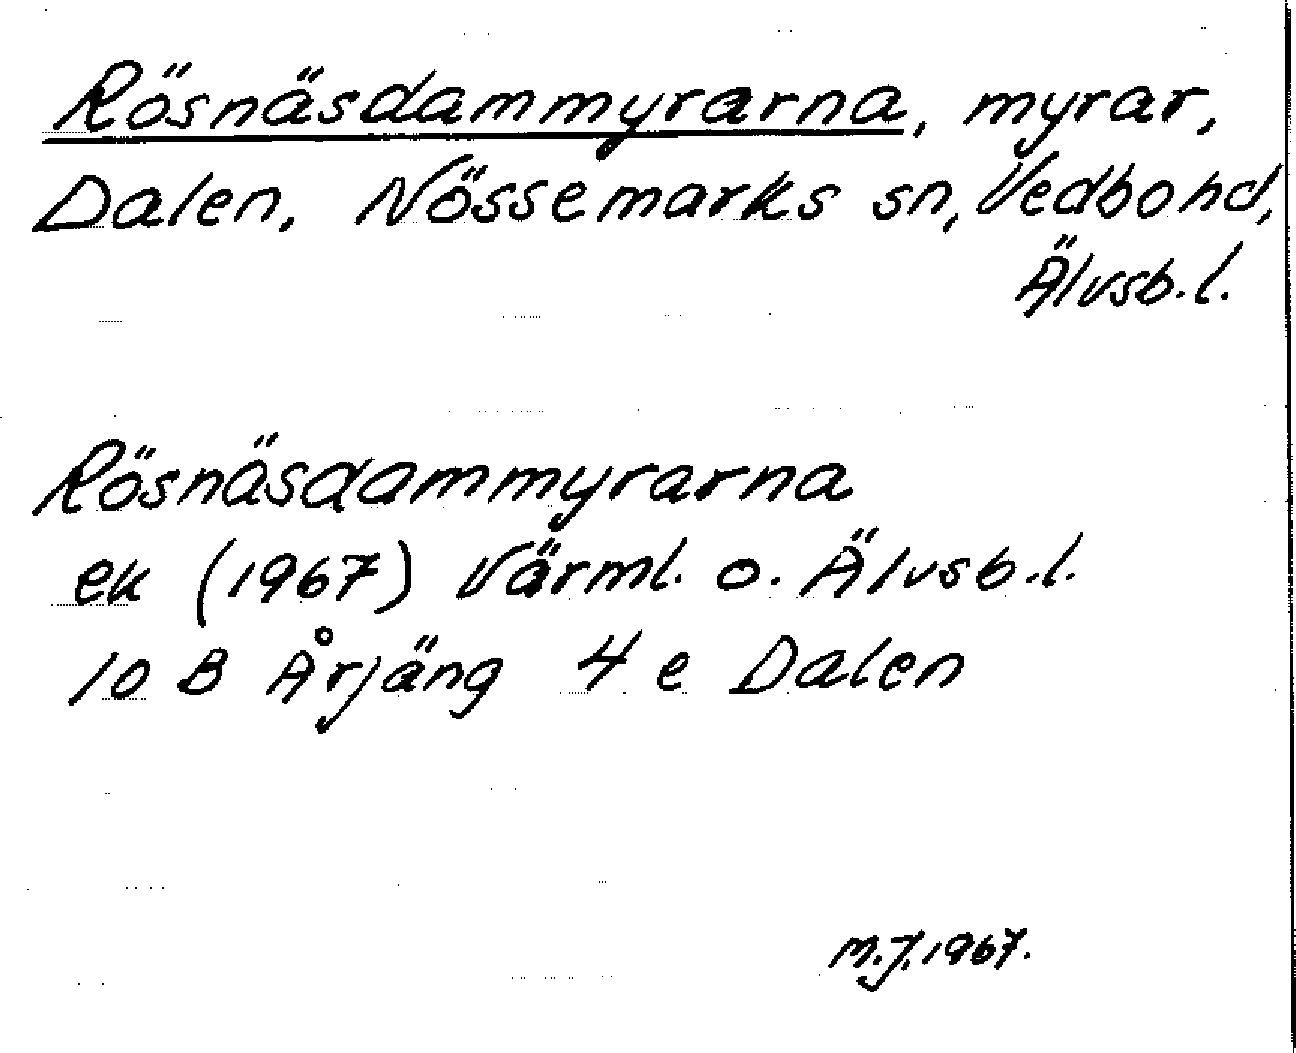 Rösnäsdammyrarna, myrar,
Dalen, Nössemarks sn, Vedbo hd,
Älvsb.l.
Rösnäsdammyrarna
ek (1967) Värml. o. Älvsb.l.
10 B Årjäng 4 e Dalen
M.J. 1967.